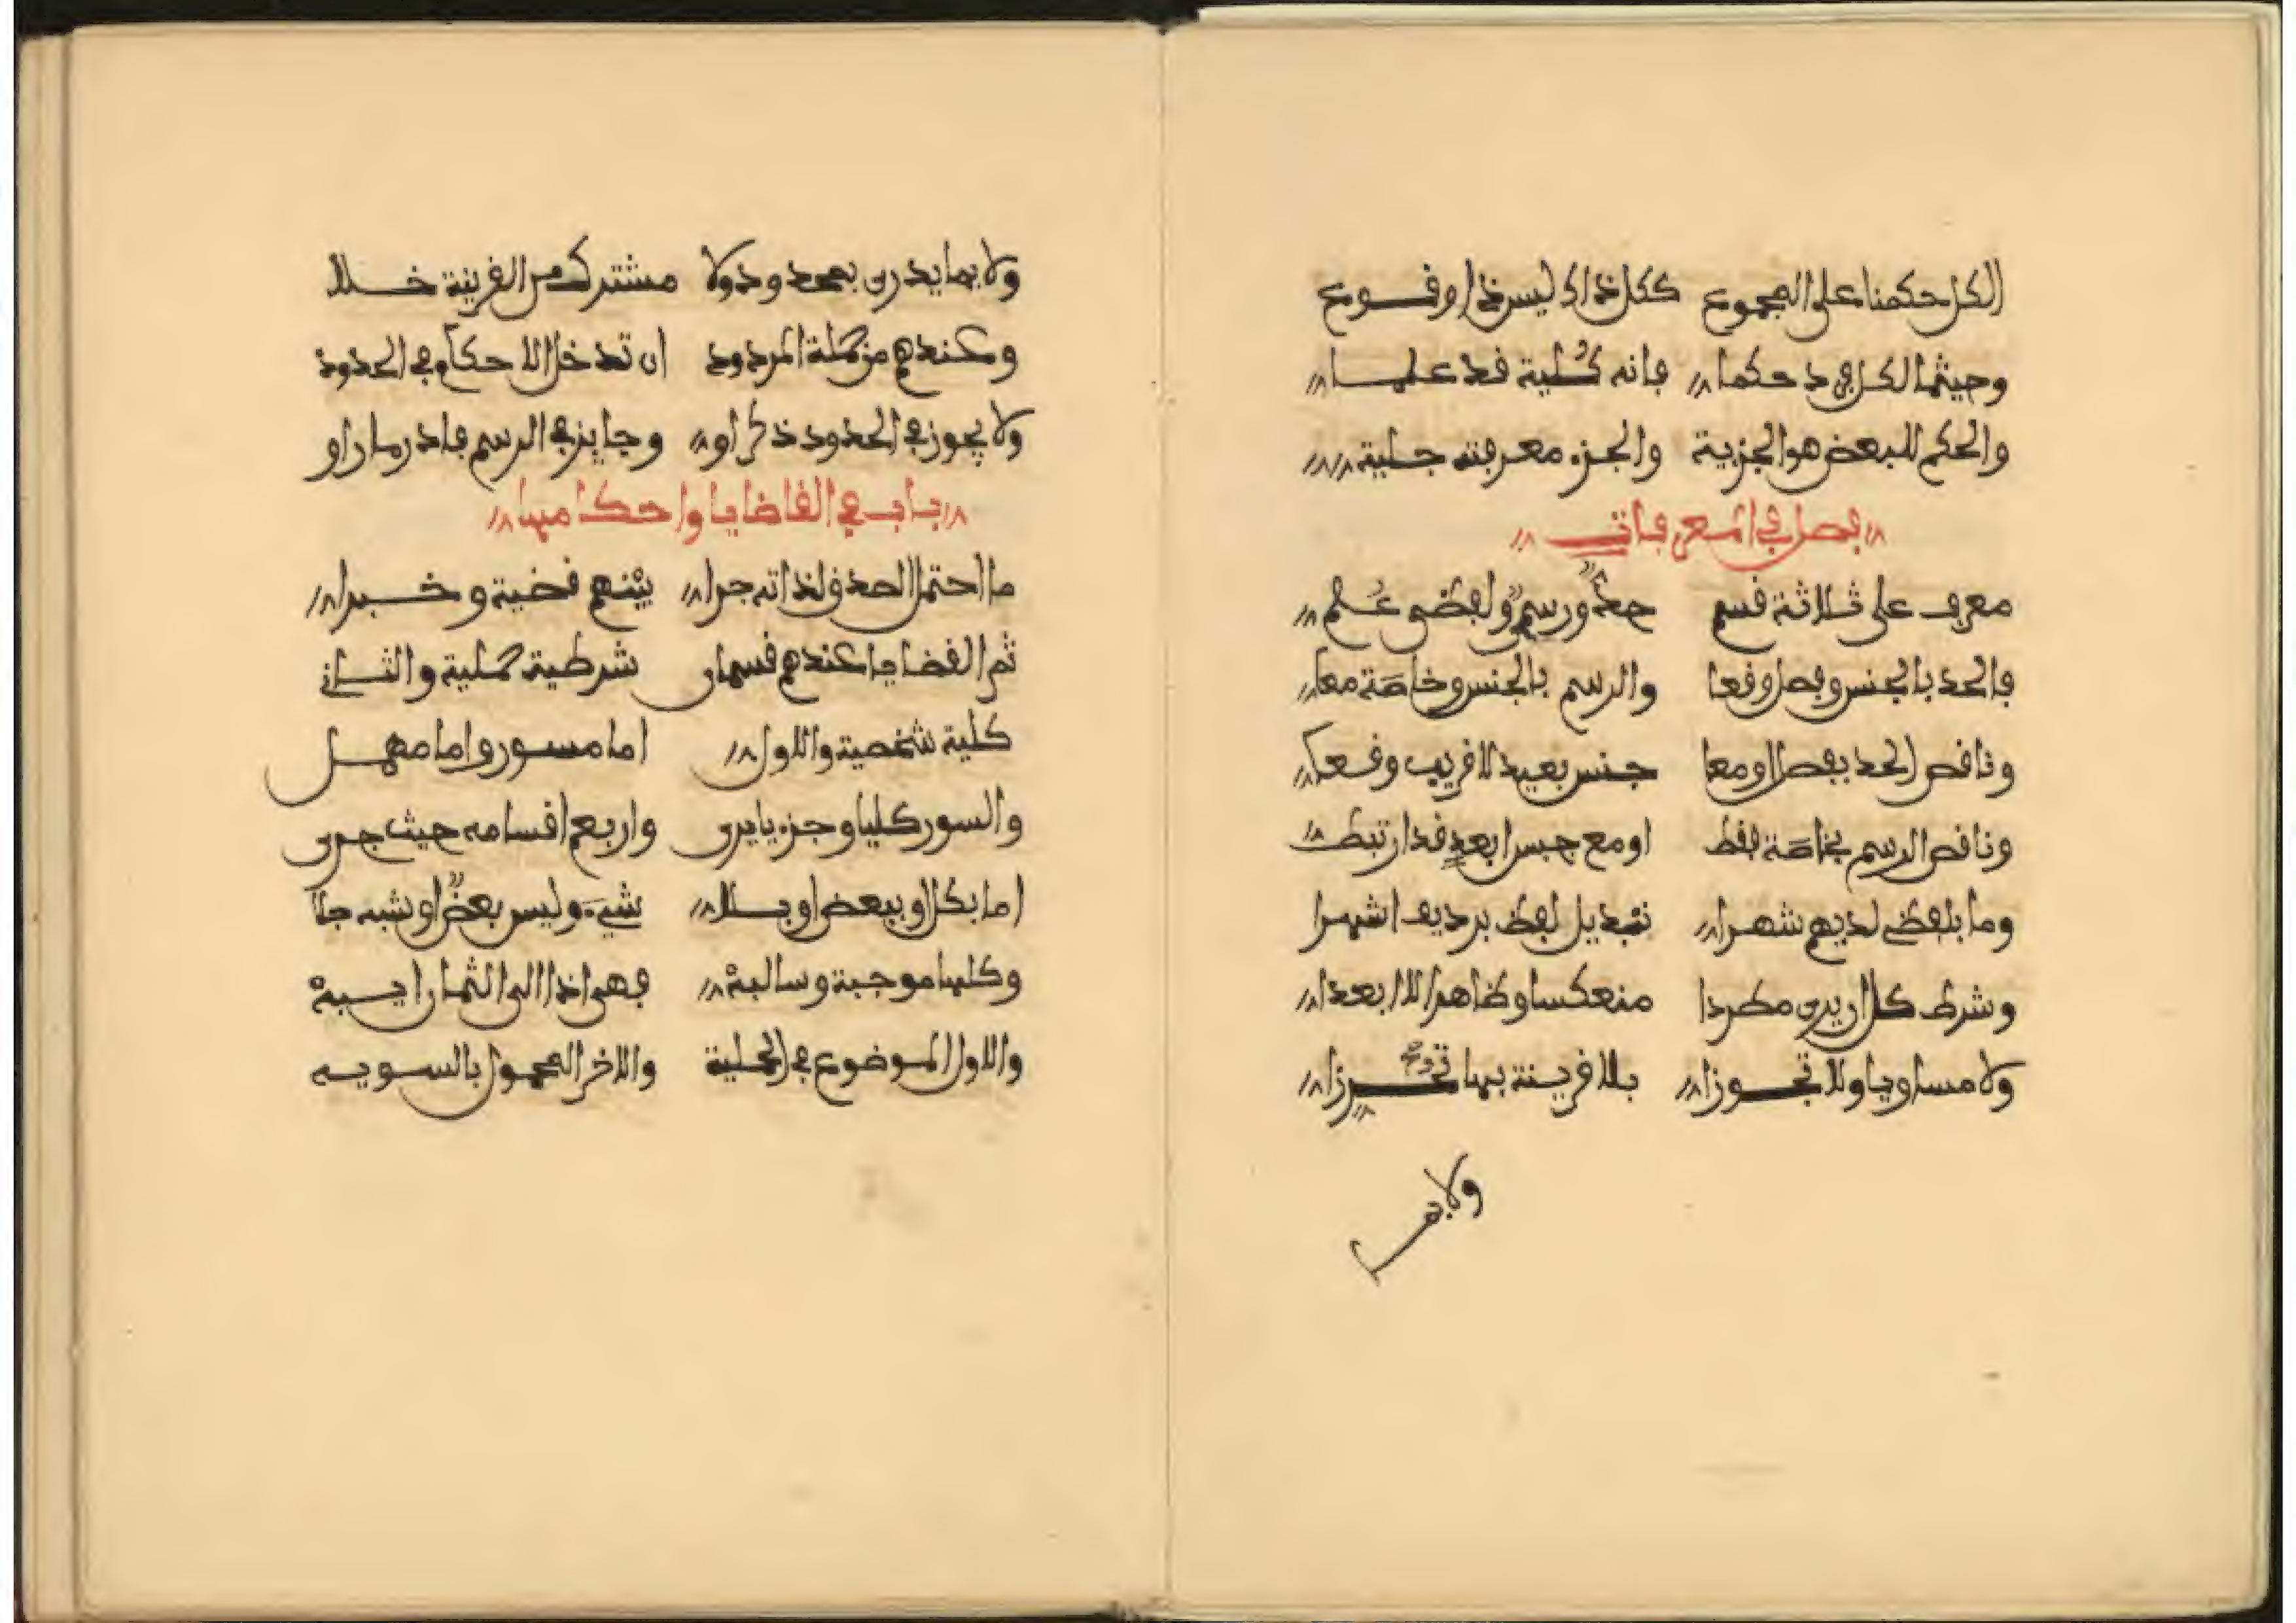 الكل حكمنا على المجموع ككل ذاك ليس ذا وقوع
وحيثما لكل فرد حكما فانه كلية قد علما
والحكم للبعض هو الجزيية والجزء معرفته جلية
فصل في المعرفات
معرف على ثلاثة قسم حد ورسمي ولفظي علم
فالحد بالجنس وفصل وقعا والرسم بالجنس وخاصة معا
وناقص الحد بفصل او معا جنس بعيد لا قريب وقعا
وناقص الرسم بخاصة فقط او مع جنس ابعد قد ارتبط
وما بلفظي لديهم شهرا تبديل لفظ برديف اشهرا
وشرط كل ان يرى مطردا منعكسا وظاهرا لا ابعدا
ولا مساويا ولا تجوزا بلا قرينة بها تحرزا
ولا بما
ولا بما يدرى بمحدود ولا مشترك من القرينة خلا
وعندهم من جملة المردود ان تدخل الاحكام في الحدود
ولا يجوز في الحدود ذكر او وجايز في الرسم فادر ما راو
باب في القاضايا واحكامها
ما احتمل الصدق لذاته جرا بينهم قضية وخبرا
ثم القضايا عندهم قسمان شرطية حملية والثاني
كلية شخصية والاول اما مسور واما مهمل
والسور كليا وجزييا يرى واربع اقسامه حيث جرى
اما بكل او ببعض او بلا شيء وليس بعض او شبه جلا
وكلها موجبة وسالبة فهي اذا الى الثمان ايبة
والاول الموضوع في الحملية والاخر المحمول بالسويه